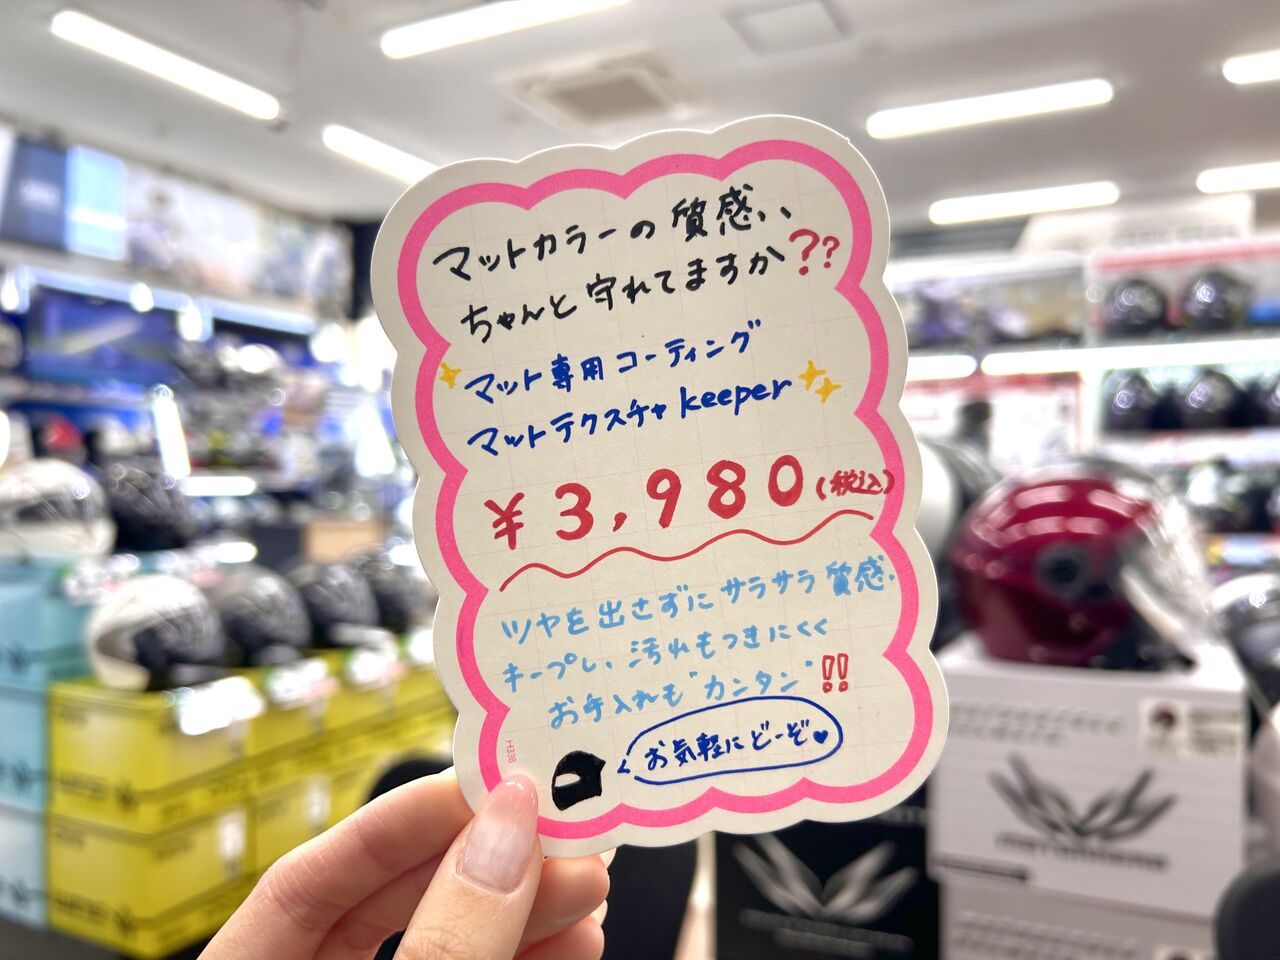 マットカラーの質感、、
ちゃんと守れてますか??
マット専用コーティング
マットテクスチャkeeper
¥3,980(税込)
ツヤを出さずにサラサラ質感、
キープし、汚れもつきにくく
お手入れも"カンタン"!!
お気軽にどーぞ♥
H338